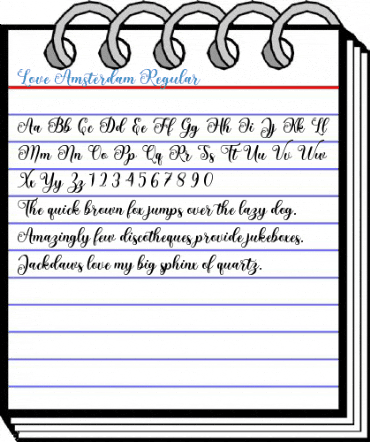 Love Amsterdam Regular
Aa Bb Cc Dd Ee Ff Gg Hh Ii Jj Kk Ll
Mm Nn Oo Pp Qq Rr Ss Tt Uu Vv Ww
Xx Yy Zz 1 2 3 4 5 6 7 8 9 0
The quick brown fox jumps over the lazy dog.
Amazingly few discotheques provide jukeboxes.
Jackdaws love my big sphinx of quartz.